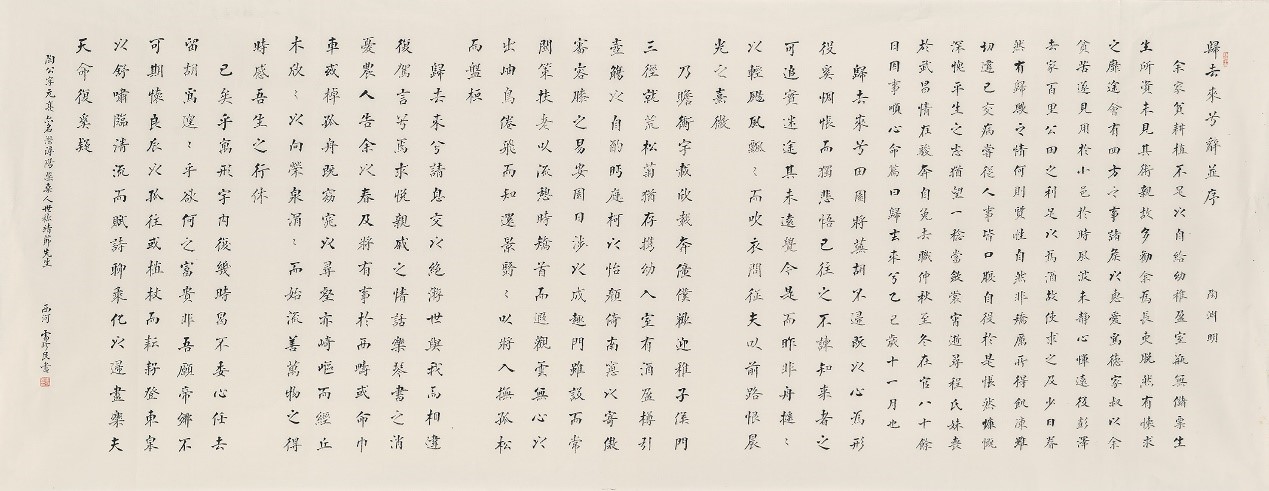 歸去來兮辭並序 陶淵明
余家貧耕植不足以自給幼稚盈室瓶無儲粟生
生所資未見其術親故多勸余為長吏脫然有懷求
之靡途會有四方之事諸侯以惠愛為德家叔以余
貧苦遂見用於小邑於時風波未靜心憚遠役彭澤
去家百里公田之利足以為酒故便求之及少日眷
然有歸歟之情何則質性自然非矯厲所得飢凍雖
切違己交病嘗從人事皆口腹自役於是悵然慷慨
深愧平生之志猶望一稔當斂裳宵逝尋程氏妹喪
於武昌情在駿奔自免去職仲秋至冬在官八十餘
日因事順心命篇曰歸去來兮乙巳歲十一月也
歸去來兮田園將蕪胡不歸既以心為形
役奚惆悵而獨悲悟已往之不諫知來者之
可追實迷途其未遠覺今是而昨非舟搖〻
以輕颺風飄〻而吹衣問征夫以前路恨晨
光之熹微
乃瞻衡宇載欣載奔僮僕歡迎稚子候門
三徑就荒松菊猶存攜幼入室有酒盈樽引
壺觴以自酌眄庭柯以怡顏倚南窗以寄傲
審容膝之易安園日涉以成趣門雖設而常
關策扶老以流憩時矯首而遐觀雲無心以
出岫鳥倦飛而知還景翳〻以將入撫孤松
而盤桓
歸去來兮請息交以絕游世與我而相違
復駕言兮焉求悅親戚之情話樂琴書之消
憂農人告余以春及將有事於西疇或命巾
車或棹孤舟既窈窕以尋壑亦崎嶇而經丘
木欣〻以向榮泉涓〻而始流善萬物之得
時感吾生之行休
已矣乎寓形宇內復幾時曷不委心任去
留胡為遑〻乎欲何之富貴非吾願帝鄉不
可期懷良辰以孤往或植杖而耘耔登東皋
以舒嘯臨清流而賦詩聊乘化以歸盡樂夫
天命復奚疑
陶公字元亮又名潛潯陽柴桑人世稱靖節先生 西河 雷珍民書